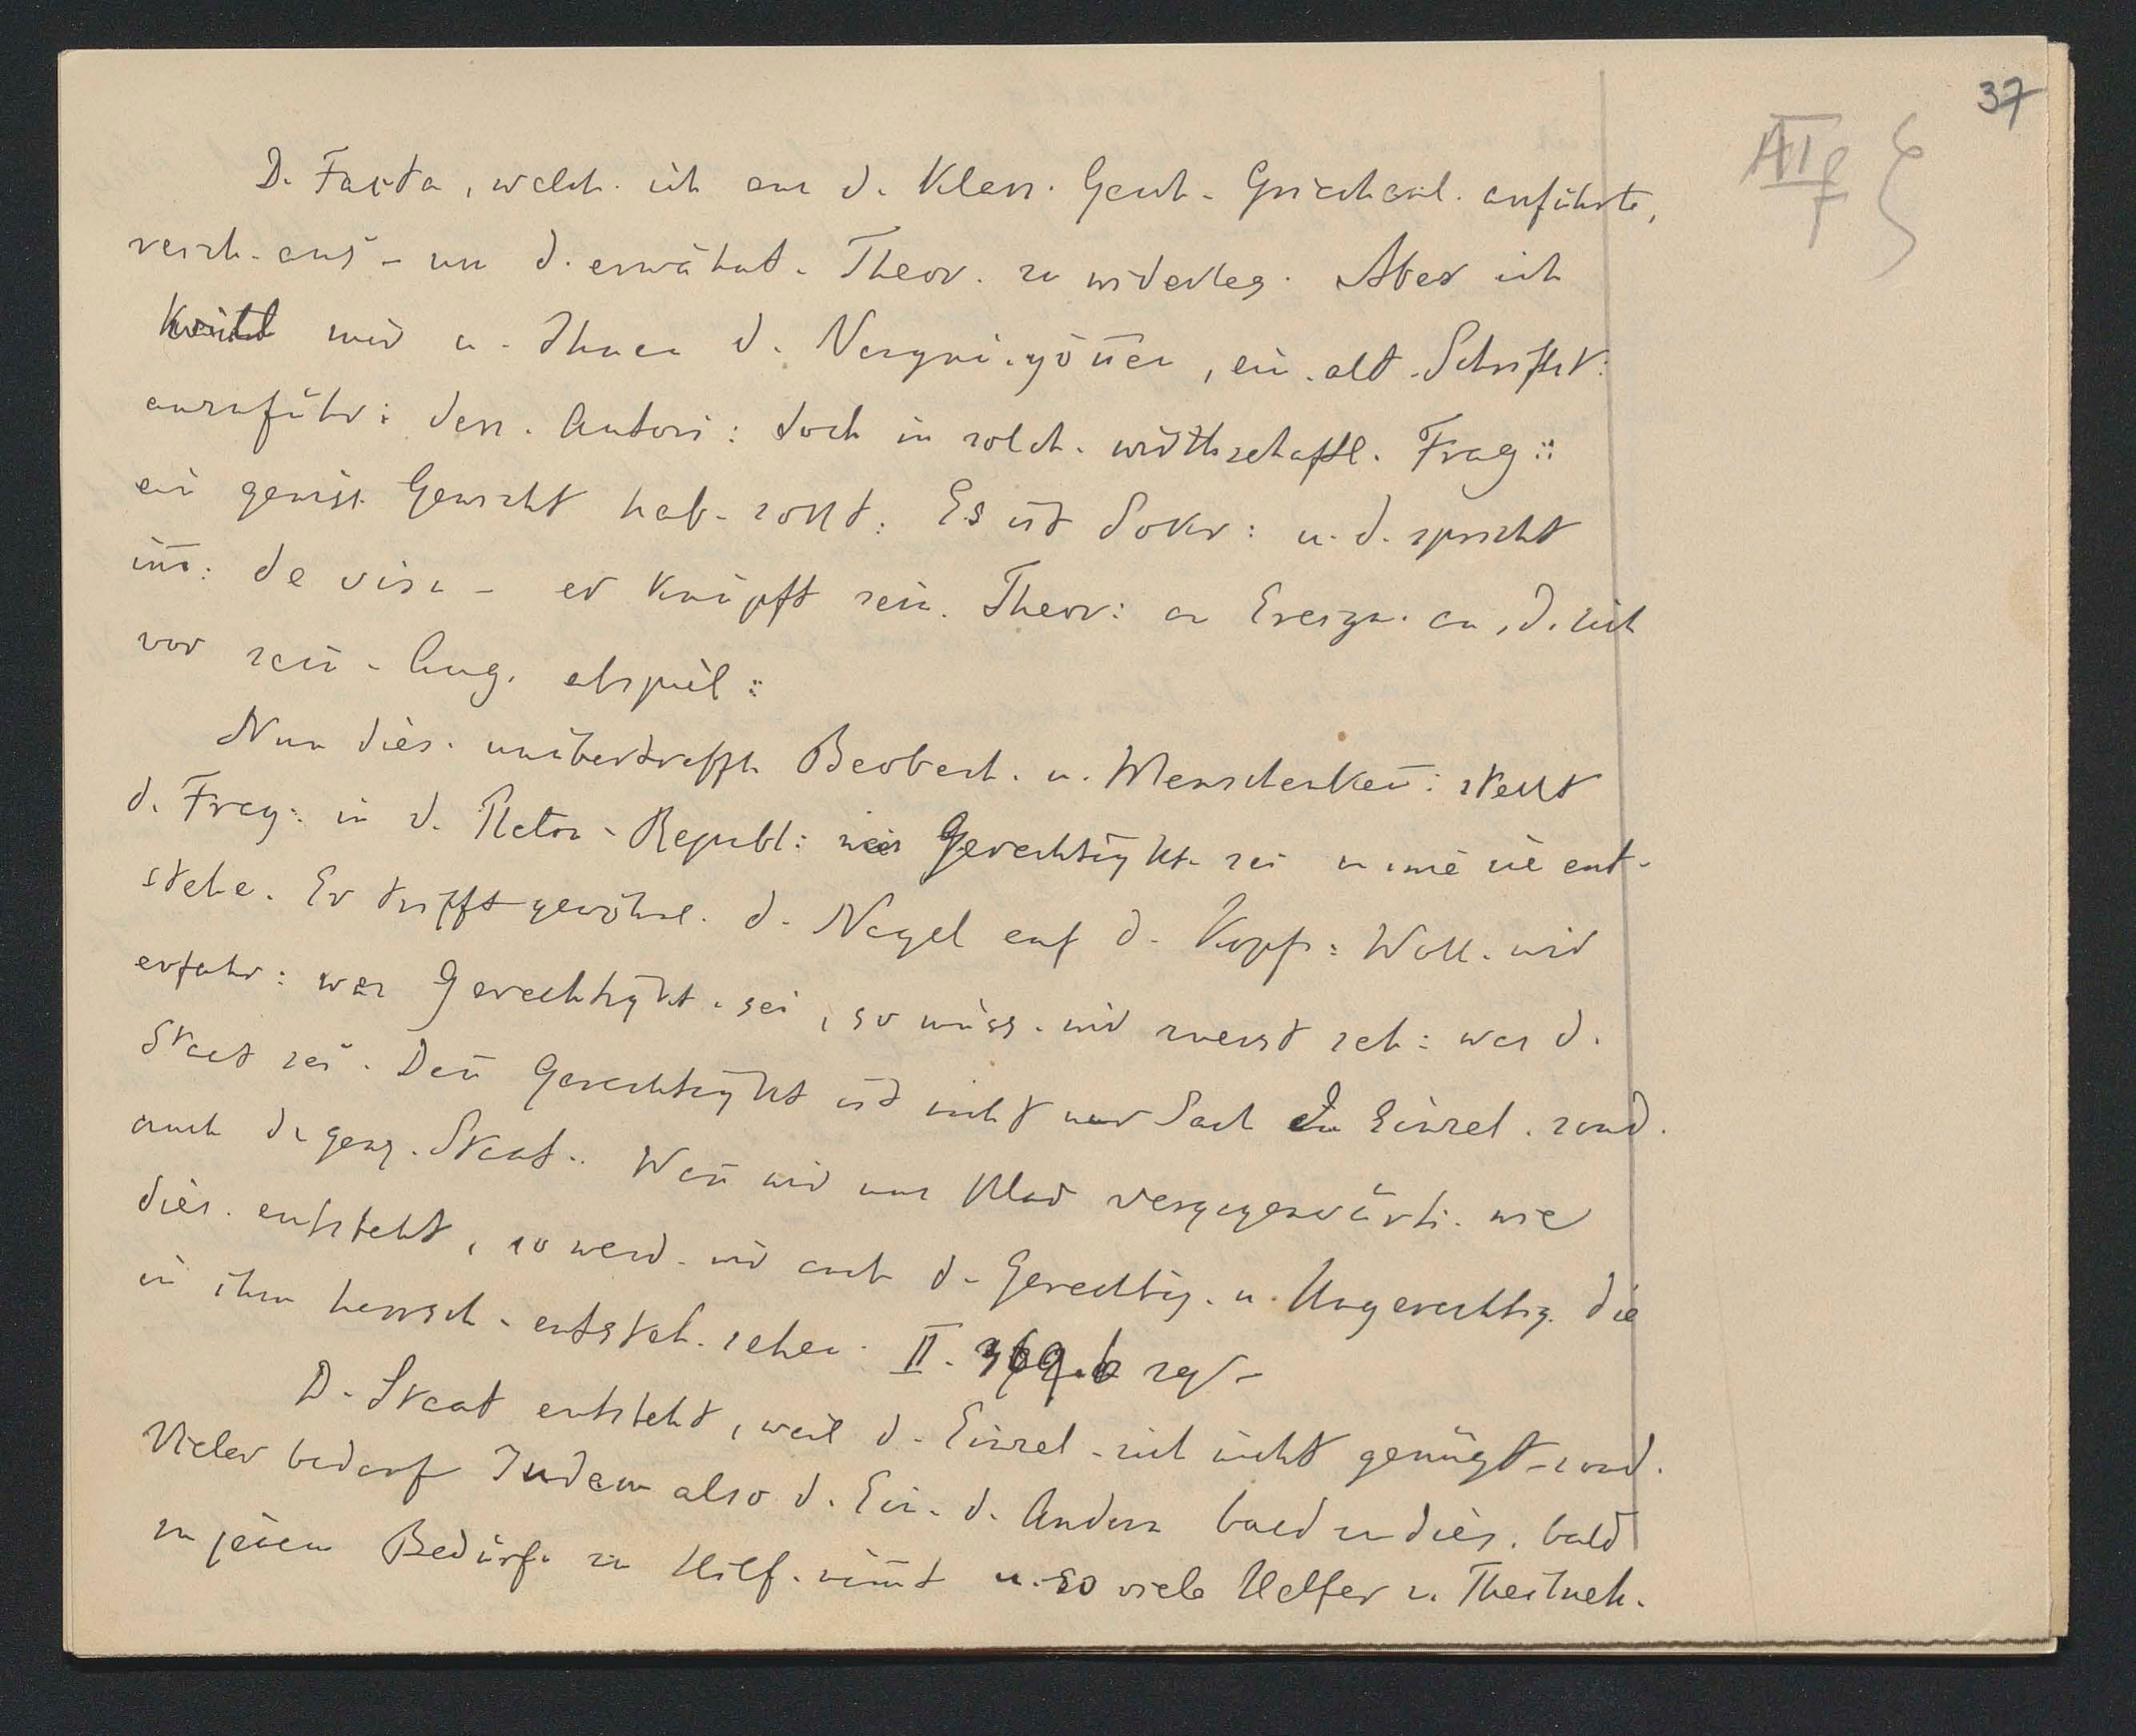 37
D. Facta, welch. ich aus d. Klass. Gesch. Griechenl. anführte,
reich. aus – um d. erwähnt. Theor. zu widerleg. Aber ich
mir u. Ihnen d. Vergnü. gönnen, ein. alt. Schriftst:
anzuführ: dess. Autori: doch in solch. wirthschaftl. Frag::
ein gewiss. Gewicht hab. sollt: Es ist Sokr: u. d. spricht
im̅: de visu – er knüpft sein. Theor: an Ereign. an, d. sich
vor sein. Aug. abspiel::
Nun dies. unübertreffl. Beobach. u. Menschenken̅: stellt
d. Frag: in d. Platon. Republ: was Gerechtigkt. sei u. wie sie ent-
stehe. Er trifft gewöhnl. d. Nagel auf d. Kopf: Woll. wir
erfahr: was Gerechtigkt. sei, so müss. wir zuerst seh: was d.
Staat sei. Den̅ Gerechtigkt ist nicht nur Sach. d. Einzel. sond.
auch d. ganz. Staat.. Wen̅ wir uns klar vergegenwärti. wie
dies. entsteht, so werd. wir auch d. Gerechtig. u. Ungerechtig. die
in ihm herrsch. entsteh. sehen. II. 369.b sq.
D. Staat entsteht, weil d. Einzel. sich nicht genügt – sond.
Vieler bedarf Indem also d. Ein. d. Andern bald zu dies. bald
zu jenem Bedürf. zu Hilf. nim̅t u. so viele Helfer u. Theilneh.